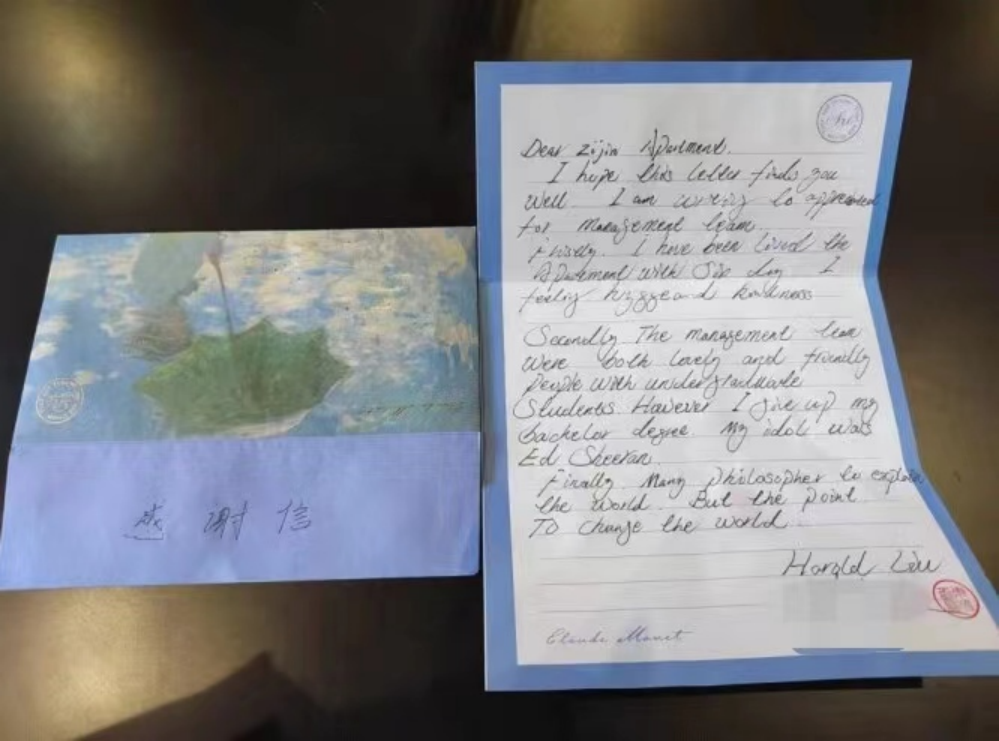 感谢信
Dear Zijin Apartment.
I hope this letter finds you
well. I am writing to appreciated
for management team.
Firstly. I have been lived the
Apartement with Six day I
feeling hygge and kindness
Secondly The management team
were both lovely and friendly
people with undergraduate
Students. However I give up my
bachelor degree. My idol was
Ed Sheeran.
Finally. Many philosopher to explain
the world. But the point
To change the world.
Harold Liu
Claude Monet